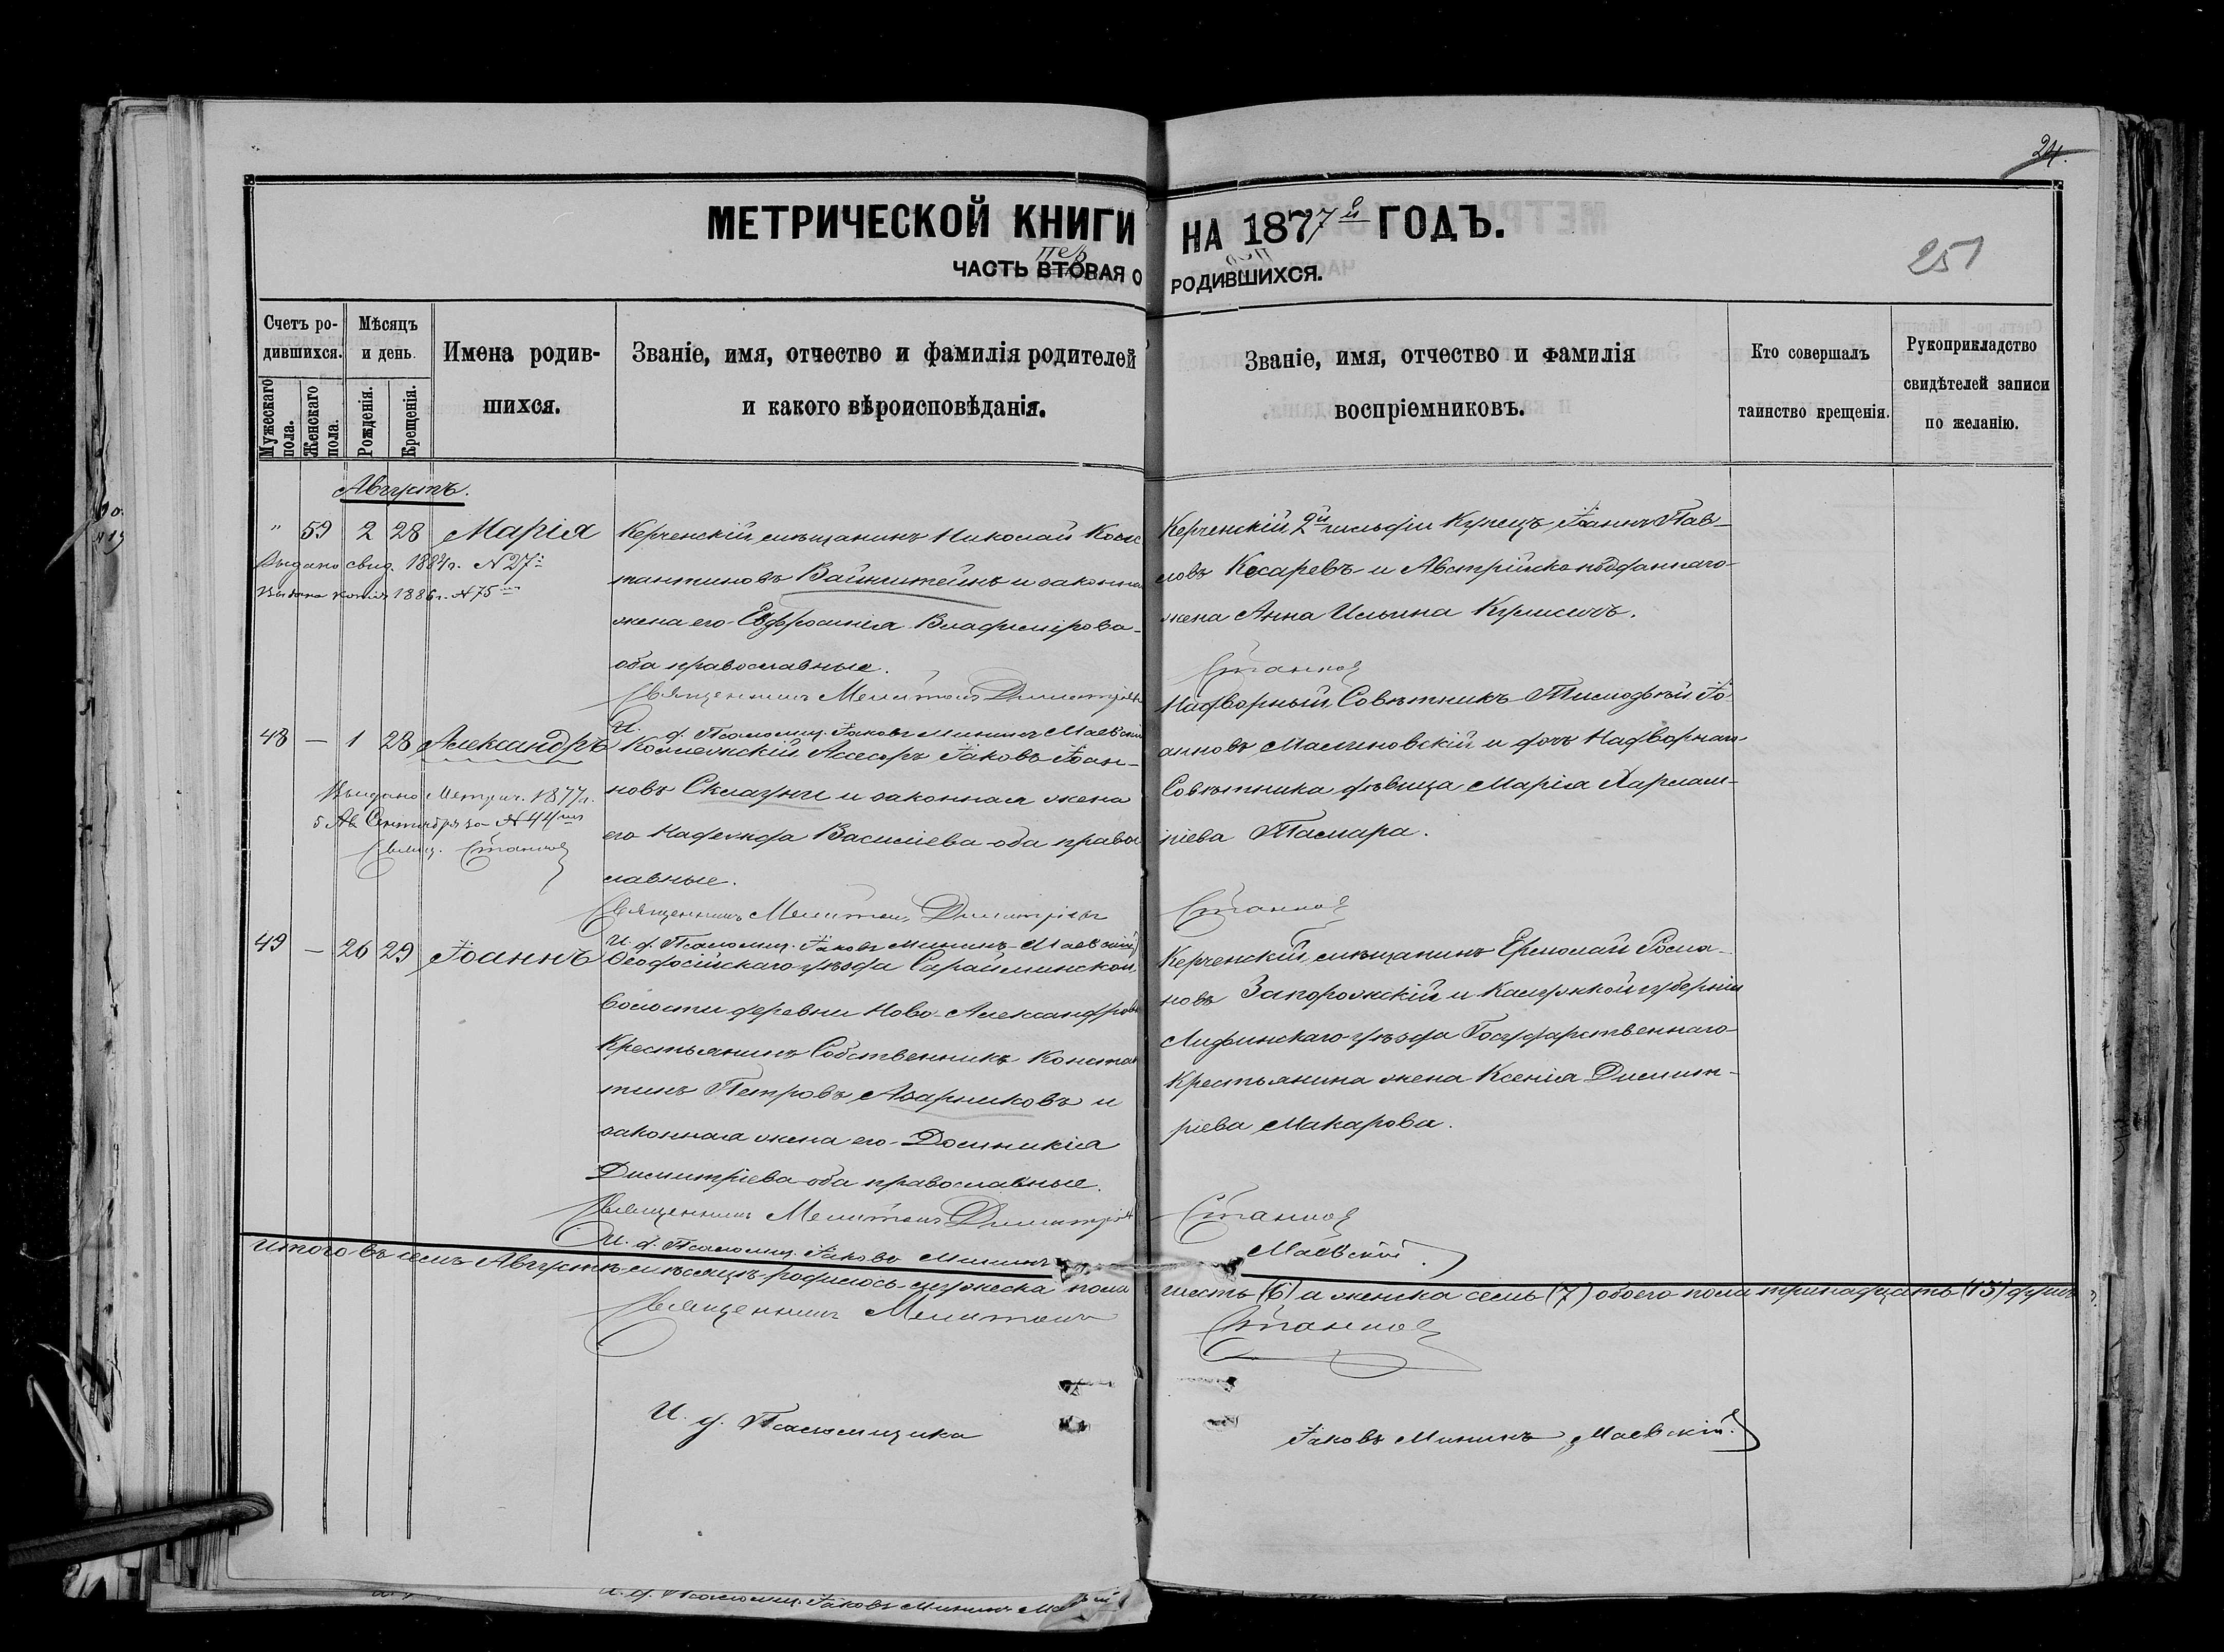 24.
МЕТРИЧЕСКОЙ КНИГИ НА 1877й ГОДЪ.
251
пер пер
ЧАСТЬ ВТОРАЯ О РОДИВШИХСЯ.
Счетъ ро-
дившихся.
Мужескаго пола.
Женскаго пола.
Мѣсяцъ
и день.
Рожденія.
Крещенія.
Имена родив-
шихся.
Званіе, имя, отчество и фамилія родителей
и какого вѣроисповѣданія.
Званіе, имя, отчество и фамилія
воспріемниковъ.
Кто совершалъ
таинство крещенія.
Рукоприкладство
свидѣтелей записи
по желанію.
Августъ.
" 59 2 28 Марія
Выдано свид. 1884г. N 27
Выдана копія 1886г. N 75
Керченскій мѣщанинъ Николай Конс
тантиновъ Вайнштейнъ и законная
жена его Евфросинія Владимірова
оба православные.
Священникъ Мелитонъ Димитріев
И. д. Псаломщ. Іаковъ Мининъ Маевскій
Керченскій 2й гильдіи Купецъ Іоаннъ Пав-
ловъ Косаревъ и Австрійско подданнаго
жена Анна Ильина Кулисичъ.
Станков
48 — 1 28 Александръ
Выдано Метрич. 1877г.
5 Сентября за N 44
Свящ. Станков
Коллежскій Ассесоръ Іаковъ Іоан-
новъ Склазуни и законная жена
его Надежда Василіева оба право
славные.
Священникъ Мелитон Димитріевъ
И. д. Псаломщ. Іаковъ Мининъ Маевскій
Надворный Совѣтникъ Тимофѣй Іо-
анновъ Малиновскій и дочь Надворнаго
Совѣтника дѣвица Марія Харлам-
піева Тамара.
Станков
49 — 26 29 Іоаннъ
Ѳеодосійскаго уѣзда Сарайминской
Волости деревни Ново-Александров
Крестьянинъ Собственникъ Констан
тинъ Петровъ Азарниковъ и
законная жена его Домникія
Димитріева оба православные.
Священникъ Мелитонъ Димитріев
И. д. Псаломщ. Іаковъ Мининъ
Керченскій мѣщанинъ Ермолай Рома-
новъ Запорожскій и Калужской губерніи
Лидвинскаго уѣзда Государственнаго
Крестьянина жена Ксенія Димит-
ріева Макарова.
Станков
Маевскій
Итого въ семъ Августѣ мѣсяцѣ родилось мужеска пола шесть (6) а женска семь (7) обоего пола тринадцать (13) душъ.
Священникъ Мелитонъ Станков
И. д. Псаломщика Іаковъ Мининъ Маевскій.
И. д. Псаломщ. Іаковъ Мининъ Маевскій